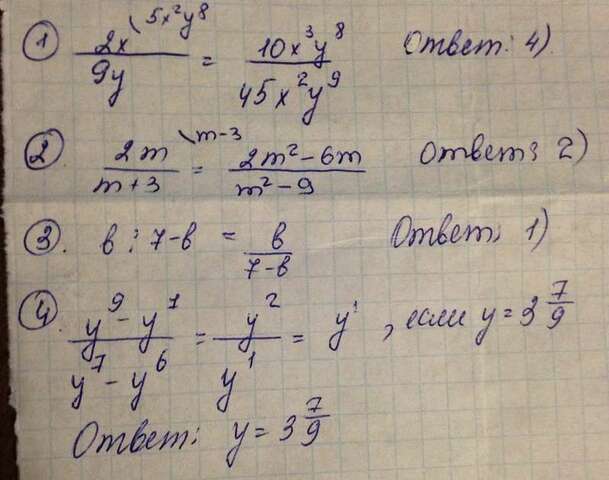 ① 2x\5x²y⁸/9y = 10x³y⁸/45x²y⁹ Ответ: 4).
② 2m\m-3/m+3 = 2m²-6m/m²-9 Ответ: 2)
③. в : 7-в = в/7-в Ответ: 1)
④. y⁹-y⁷/y⁷-y⁶ = y²/y¹ = y¹, если y = 3 7/9
Ответ: y = 3 7/9